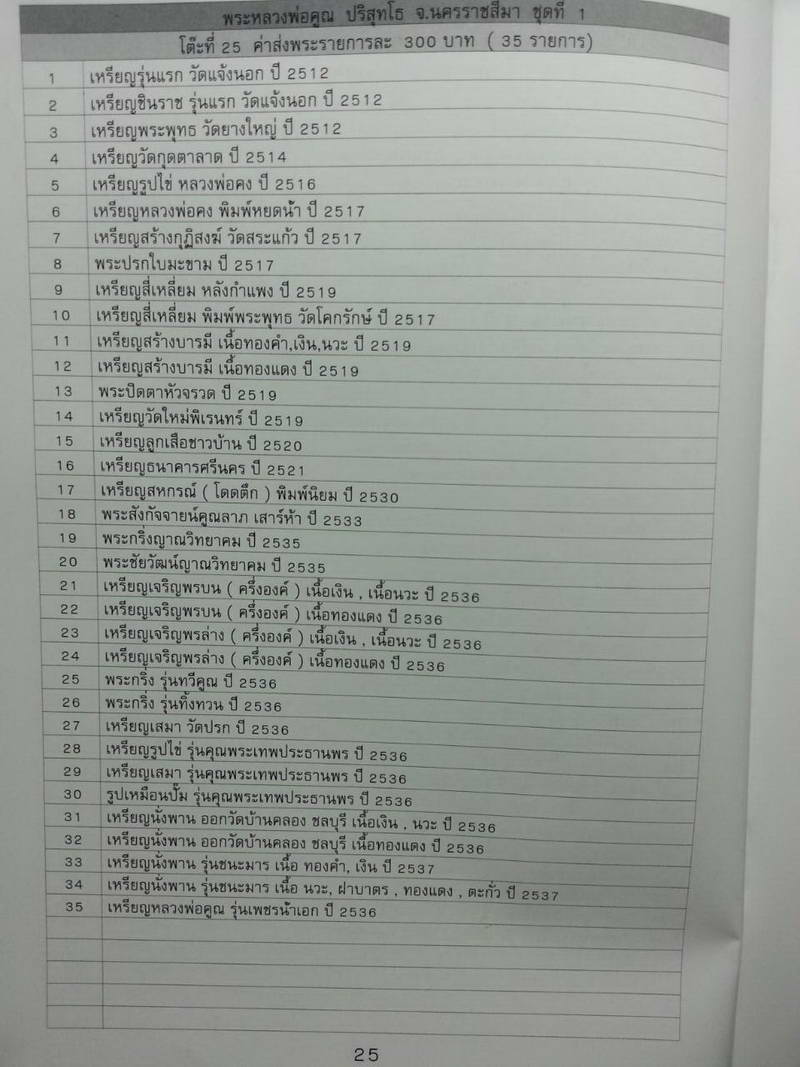 พระหลวงพ่อคูณ ปริสุทโธ จ.นครราชสีมา ชุดที่ 1
โต๊ะที่ 25 ค่าส่งพระรายการละ 300 บาท ( 35 รายการ)
1 เหรียญรุ่นแรก วัดแจ้งนอก ปี 2512
2 เหรียญชินราช รุ่นแรก วัดแจ้งนอก ปี 2512
3 เหรียญพระพุทธ วัดยางใหญ่ ปี 2512
4 เหรียญวัดกุดตาลาด ปี 2514
5 เหรียญรูปไข่ หลวงพ่อคง ปี 2516
6 เหรียญหลวงพ่อคง พิมพ์หยดน้ำ ปี 2517
7 เหรียญสร้างกุฏิสงฆ์ วัดสระแก้ว ปี 2517
8 พระปรกใบมะขาม ปี 2517
9 เหรียญสี่เหลี่ยม หลังกำแพง ปี 2519
10 เหรียญสี่เหลี่ยม พิมพ์พระพุทธ วัดโคกรักษ์ ปี 2517
11 เหรียญสร้างบารมี เนื้อทองคำ,เงิน,นวะ ปี 2519
12 เหรียญสร้างบารมี เนื้อทองแดง ปี 2519
13 พระปิดตาหัวจรวด ปี 2519
14 เหรียญวัดใหม่พิเรนทร์ ปี 2519
15 เหรียญลูกเสือชาวบ้าน ปี 2520
16 เหรียญธนาคารศรีนคร ปี 2521
17 เหรียญสหกรณ์ ( โดดตึก ) พิมพ์นิยม ปี 2530
18 พระสังกัจจายน์คูณลาภ เสาร์ห้า ปี 2533
19 พระกริ่งญาณวิทยาคม ปี 2535
20 พระชัยวัฒน์ญาณวิทยาคม ปี 2535
21 เหรียญเจริญพรบน ( ครึ่งองค์ ) เนื้อเงิน , เนื้อนวะ ปี 2536
22 เหรียญเจริญพรบน ( ครึ่งองค์ ) เนื้อทองแดง ปี 2536
23 เหรียญเจริญพรล่าง ( ครึ่งองค์ ) เนื้อเงิน , เนื้อนวะ ปี 2536
24 เหรียญเจริญพรล่าง ( ครึ่งองค์ ) เนื้อทองแดง ปี 2536
25 พระกริ่ง รุ่นทวีคูณ ปี 2536
26 พระกริ่ง รุ่นทิ้งทวน ปี 2536
27 เหรียญเสมา วัดปรก ปี 2536
28 เหรียญรูปไข่ รุ่นคุณพระเทพประธานพร ปี 2536
29 เหรียญเสมา รุ่นคุณพระเทพประธานพร ปี 2536
30 รูปเหมือนปั๊ม รุ่นคุณพระเทพประธานพร ปี 2536
31 เหรียญนั่งพาน ออกวัดบ้านคลอง ชลบุรี เนื้อเงิน , นวะ ปี 2536
32 เหรียญนั่งพาน ออกวัดบ้านคลอง ชลบุรี เนื้อทองแดง ปี 2536
33 เหรียญนั่งพาน รุ่นชนะมาร เนื้อ ทองคำ, เงิน ปี 2537
34 เหรียญนั่งพาน รุ่นชนะมาร เนื้อ นวะ, ฝาบาตร , ทองแดง , ตะกั่ว ปี 2537
35 เหรียญหลวงพ่อคูณ รุ่นเพชรน้ำเอก ปี 2536
25